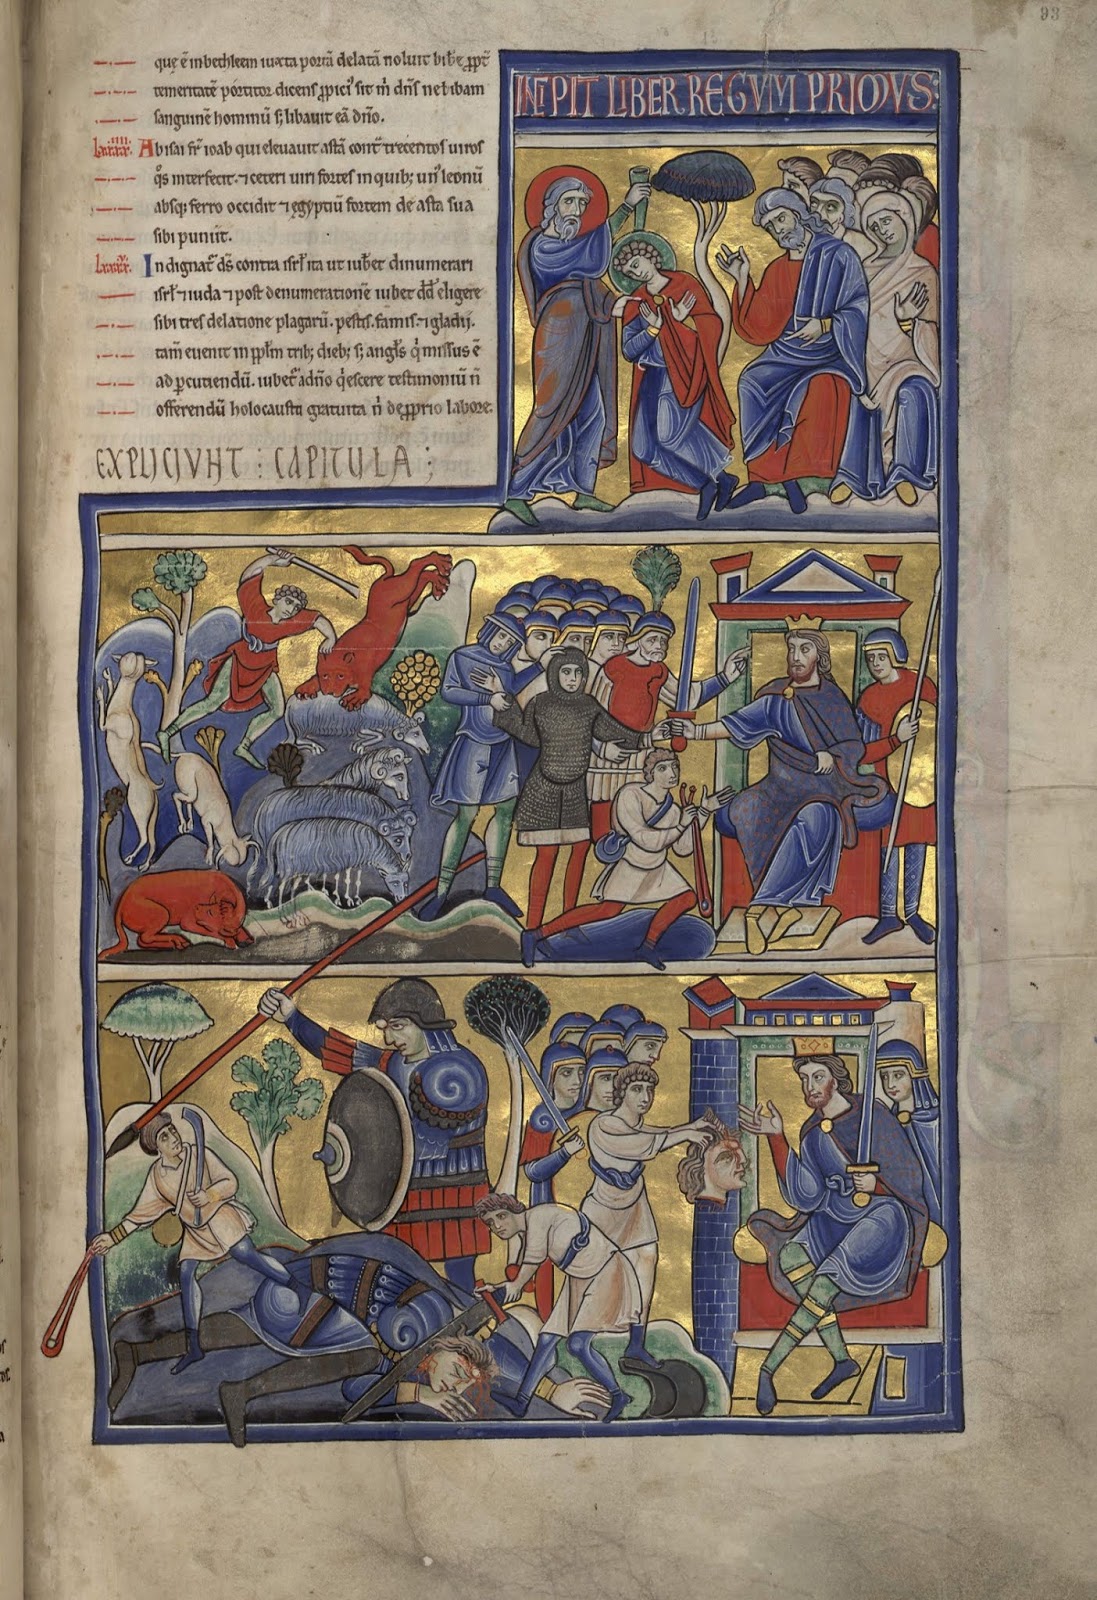 93
quę ē inbethleem iuxta portā delatā noluit bibe ꝓpt
temeritatē portitor dicens ꝓpici sit m dns ne bibam
sanguinē hominū s; libauit eā dño.
lxxxxiiii. Abisai fr ioab qui eleuauit astā cont trecentos uiros
q̊s interfecit. ⁊ ceteri uiri fortes in quib; un leonū
absq; ferro occidit ⁊ ęgyptiū fortem de asta sua
sibi puniit.
Indignat ds contra isrł ita ut iubet dinumerari
isrł ⁊ iuda ⁊ post denumerationē iubet dd eligere
sibi tres delatione plagarū. pestis. famis. ⁊ gladij.
tam euenit in pplm trib; dieb; s; angls q missus ē
ad pcutiendū. iubet adño qescere testimoniū n
offerendū holocausta gratuita n deꝓprio labore.
EXPLICIVNT : CAPITULA ;
INCIPIT LIBER REGVM PRIMVS: